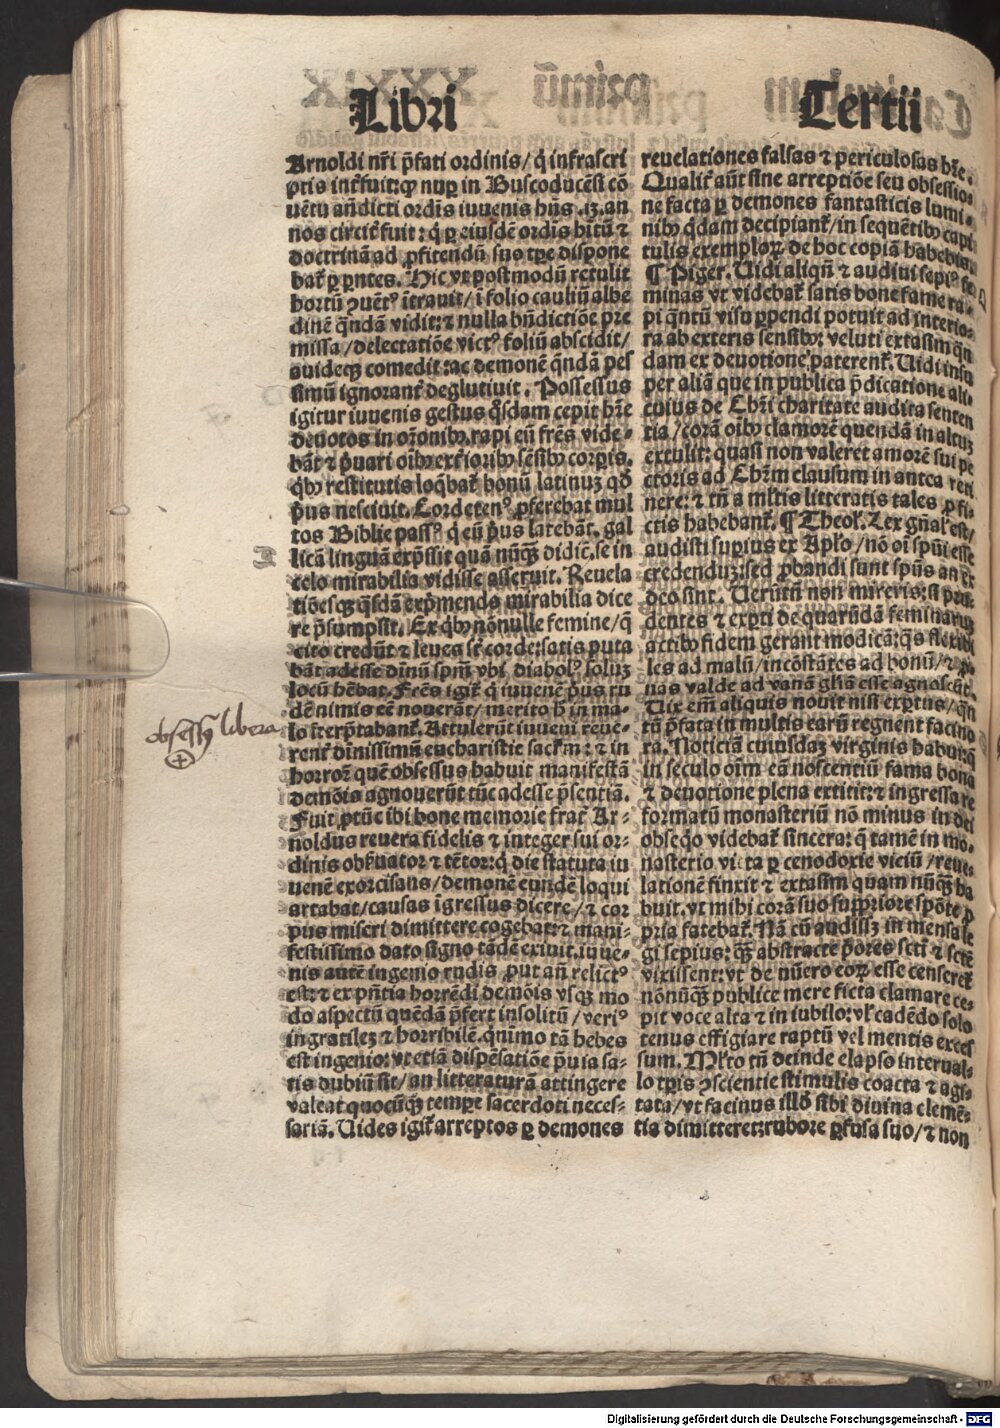 Libri Tertii
Arnoldi nr̄i p̄fati ordinis/ q̇ infrascri
ptis int̄fuit: ꝙ nuꝑ in Buscoducēsi cō
uētu an̄dicti ordīs iuuenis hn̄s .13. an
nos circit̄ fuit: q̇ ꝑ eiusdē ordīs hītū ⁊
doctrinā ad ꝓfitendū suo tꝑe dispone
bat̄ ꝑ pn̄tes. Hic vt postmodū retulit
hortū ꝯuētꝰ ītrauit/ ī folio cauliū albe
dinē q̄ndā vidit: ⁊ nulla bn̄dictiōe pre
missa/ delectatiōe victꝰ foliū abscidit/
auideqꝫ comedit: ac demonē q̄ndā pes
simū ignorant̄ deglutiuit. Possessus
igitur iuuenis gestus q̊sdam cepit hr̄e
deuotos in or̄onibꝰ. rapi eū fr̄es vide-
bāt ⁊ p̄uari oībꝰ ext̄ioribꝰ sēsibꝰ corꝑis.
q̇bꝰ restitutis loq̄bat̄ bonū latinuꝫ qđ
p̄us nesciuit. Cordetenꝰ ꝓferebat mul
tos Biblie passꝰ q̇ eū p̄us latebāt. gal
licā linguā exp̄ssit quā nūqꝫ didic̄. se in
celo mirabilia vidisse asseruit. Reuela
tiōesqꝫ q̊sdā exp̄mendo mirabilia dice
re p̄sumpsit. Ex q̇bꝰ nōnulle femine/ q̄
cito credūt ⁊ leues st̄ corde: satis puta
bāt adesse dīnū spm̄ vbi diabolꝰ soluꝫ
locū hēbat. Fr̄es igit̄ q̇ iuuenē p̄us ru
dē nimis eē nouerāt/ merito h̄ in ma-
lo īterp̄tabant̄. Attulerūt iuueni reue-
rent̄ dīnissimū eucharistie sacr̄m: ⁊ in
horrorē quē obsessus habuit manifestā
demōis agnouerūt tūc adesse p̄sentiā.
Fuit ꝓtūc ibi bone memorie frat̄ Ar-
noldus reuera fidelis ⁊ integer sui or-
dinis obſuator ⁊ tētor: q̇ die statuta iu
uenē exorcisans/ demonē eundē loqui
artabat/ causas īgressus dicere/ ⁊ cor
pus miseri dimittere cogebat: ⁊ mani-
festissimo dato signo tādē exiuit. iuue-
nis autē ingenio rudis ꝓut an̄ relictꝰ
est: ⁊ ex pn̄tia horrēdi demōis vsqꝫ mo
do aspectū quēdā p̄fert insolitū/ verꝰ
ingratileꝫ ⁊ horribilē. quīimo tā hebes
est ingenio: vt etiā dispēsatiōe p̄uia sa-
tis dubiū sit/ an litteraturā attingere
valeat quocūqꝫ tempꝑe sacerdoti neces-
sariā. Uides igit̄ arreptos ꝑ demones
reuelationes falsas ⁊ periculosas hr̄e.
Qualit̄ aūt sine arreptiōe seu obsessio-
ne facta ꝑ demones fantasticis lumi-
nibꝰ q̇dam decipiant̄/ in sequētibꝰ capi
tulis exemploꝝ de hoc copiā habebis.
¶ Piger. Uidi aliqn̄ ⁊ audiui sepiꝰ fe
minas vt videbat̄ satis bone fame ra-
pi q̄ntū visu ꝑpendi potuit ad interio-
ra ab exteris sensibꝰ: veluti extasim q̄n
dam ex deuotione paterent̄. Uidi insu
per aliā que in publica p̄dicatione ali-
cuius de Chr̄i charitate audita senten
tia/ corā oībꝰ clamorē quendā in altuꝫ
extulit: quasi non valeret amorē sui pe
ctoris ad Chr̄m clausum in antea reti
nere: ⁊ tn̄ a mltis litteratis tales ꝓ fi-
ctis habebant̄. ¶ Theol. Lex gn̄al' est/
audisti supius ex Apl'o/ nō oī spūi esse
credenduꝫ: sed ꝓbandi sunt spūs an ex
deo sint. Uerūtn̄ non mireris: si pru-
dentes ⁊ exꝑti de quarūdā feminarum
actibꝰ fidem gerant modicā: q̄s flexibi
les ad malū/ incōstātes ad bonū/ ⁊ p̄
uas valde ad vanā gl'iā esse agnoscūt.
Uix em̄ aliquis nouit nisi exꝑtus/ q̄n
tū p̄fata in multis earū regnent facino
ra. Noticiā cuiusdaꝫ virginis habui: q̄
in seculo oīm eā noscentiū fama bona
⁊ deuotione plena extitit: ⁊ ingressa re
formatū monasteriū nō minus in dei
obseq̊o videbat̄ sincera: q̄ tamē in mo-
nasterio victa ꝑ cenodoxie viciū/ reue-
lationē finxit ⁊ extasim quam nūqꝫ ha
buit. vt mihi corā suo supꝑiore spōte ꝓ
pria fatebat̄. Nā cū audissꝫ in mensa le
gi sepius: qꝫ abstracte p̄ores scti ⁊ scte
vixissent: vt de nūero eoꝝ esse censeret̄
nōnūqꝫ publice mere ficta clamare ce-
pit voce alta ⁊ in iubilo: vl' cadēdo solo
tenus effigiare raptū vel mentis exces
sum. Ml'to tn̄ deinde elapso interual-
lo tꝑis ꝯscientie stimulis coacta ⁊ agi-
tata/ vt facinus illđ sibi diuina clemē-
tia dimitteret: rubore ꝑfusa suo/ ⁊ non
J
Q
obsessus libera
Digitalisierung gefördert durch die Deutsche Forschungsgemeinschaft - DFG